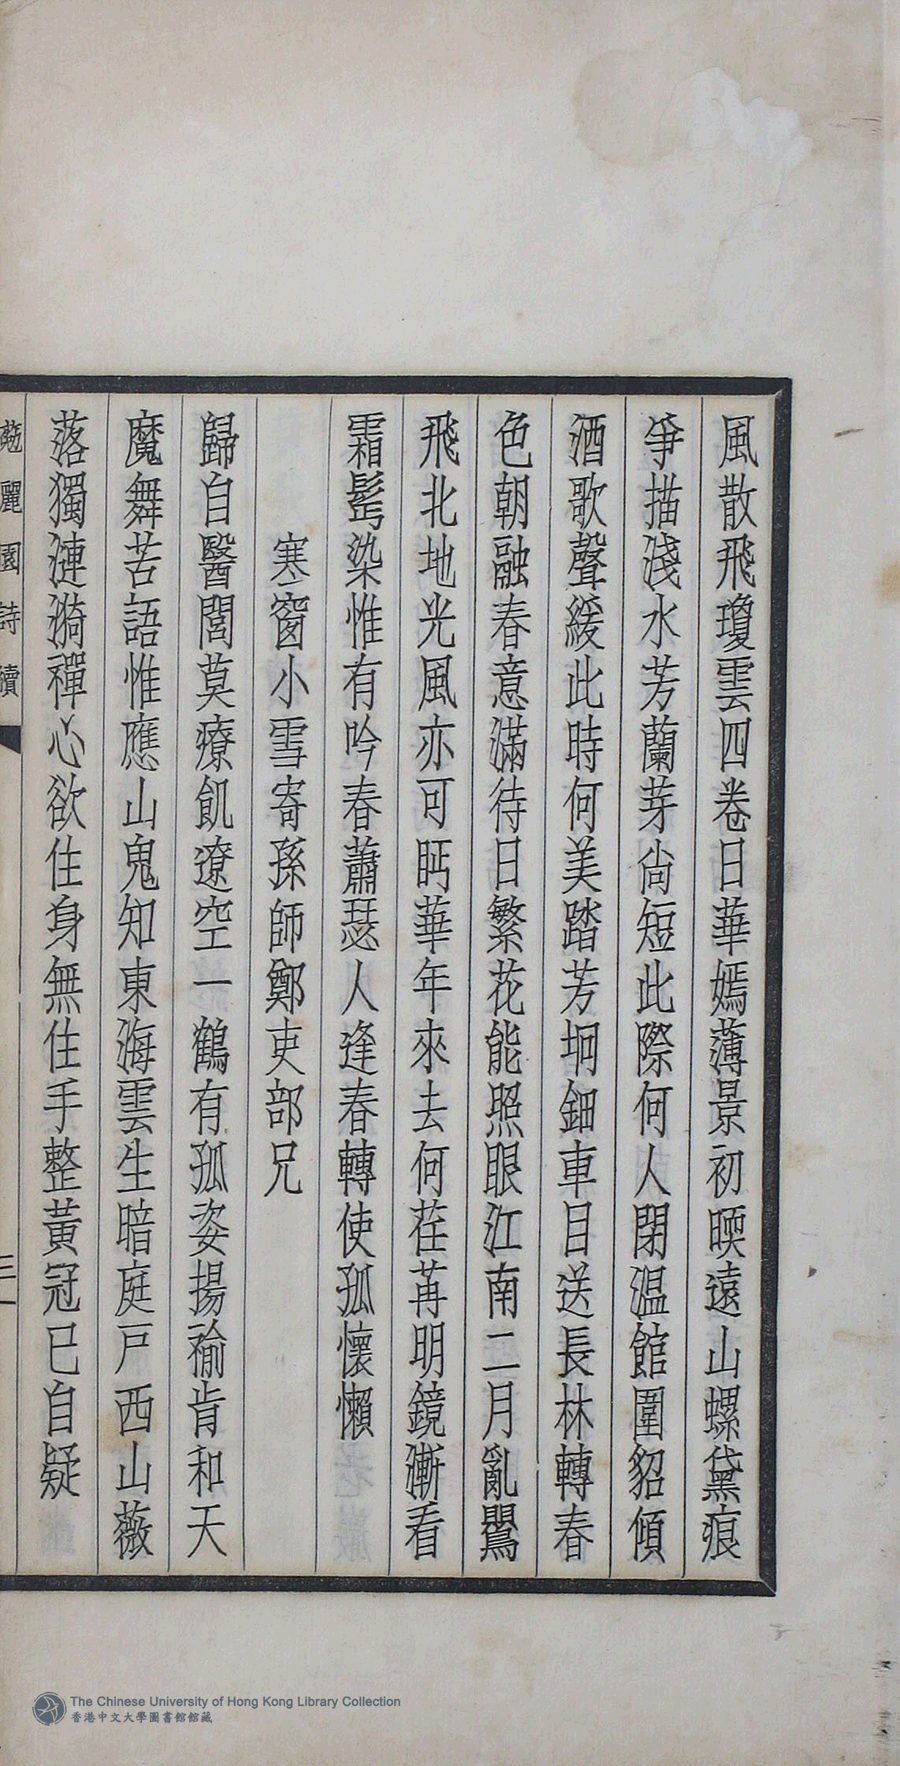 風散飛瓊雲四卷日華嫣薄景初暎遠山螺黛痕
爭描淺水芳蘭芽尙短此際何人閉温館圍貂傾
酒歌聲緩此時何美踏芳坰鈿車目送長林轉春
色朝融春意滿待日繁花能照眼江南二月亂鸎
飛北地光風亦可眄華年來去何荏苒明鏡漸看
霜髩染惟有吟春蕭瑟人逢春轉使孤懷懶
寒窗小雪寄孫師鄭吏部兄
歸自醫閭莫療飢遼空一鶴有孤姿揚褕肯和天
魔舞苦語惟應山鬼知東海雲生暗庭戸西山薇
落獨漣漪禪心欲住身無住手整黃冠已自疑
麗園詩續
三一
The Chinese University of Hong Kong Library Collection
香港中文大學圖書館館藏